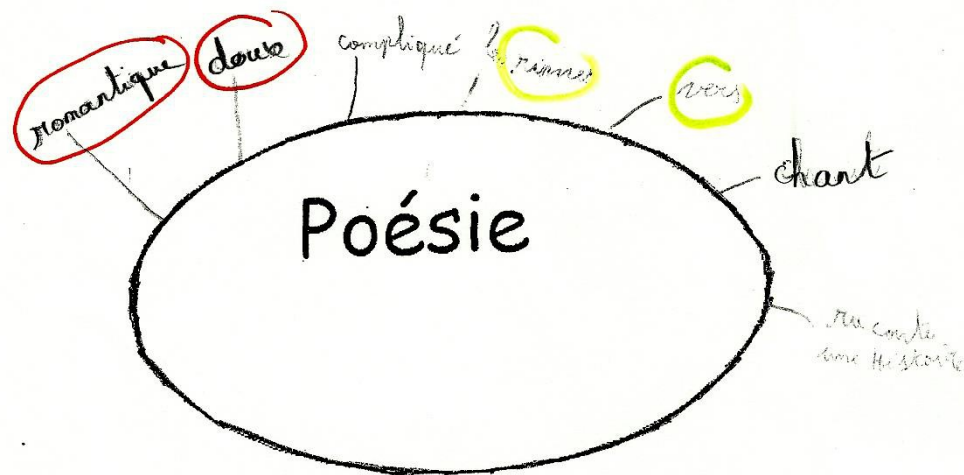 romantique
doux
compliqué
rimes
vers
chant
raconte
une Histoire
Poésie